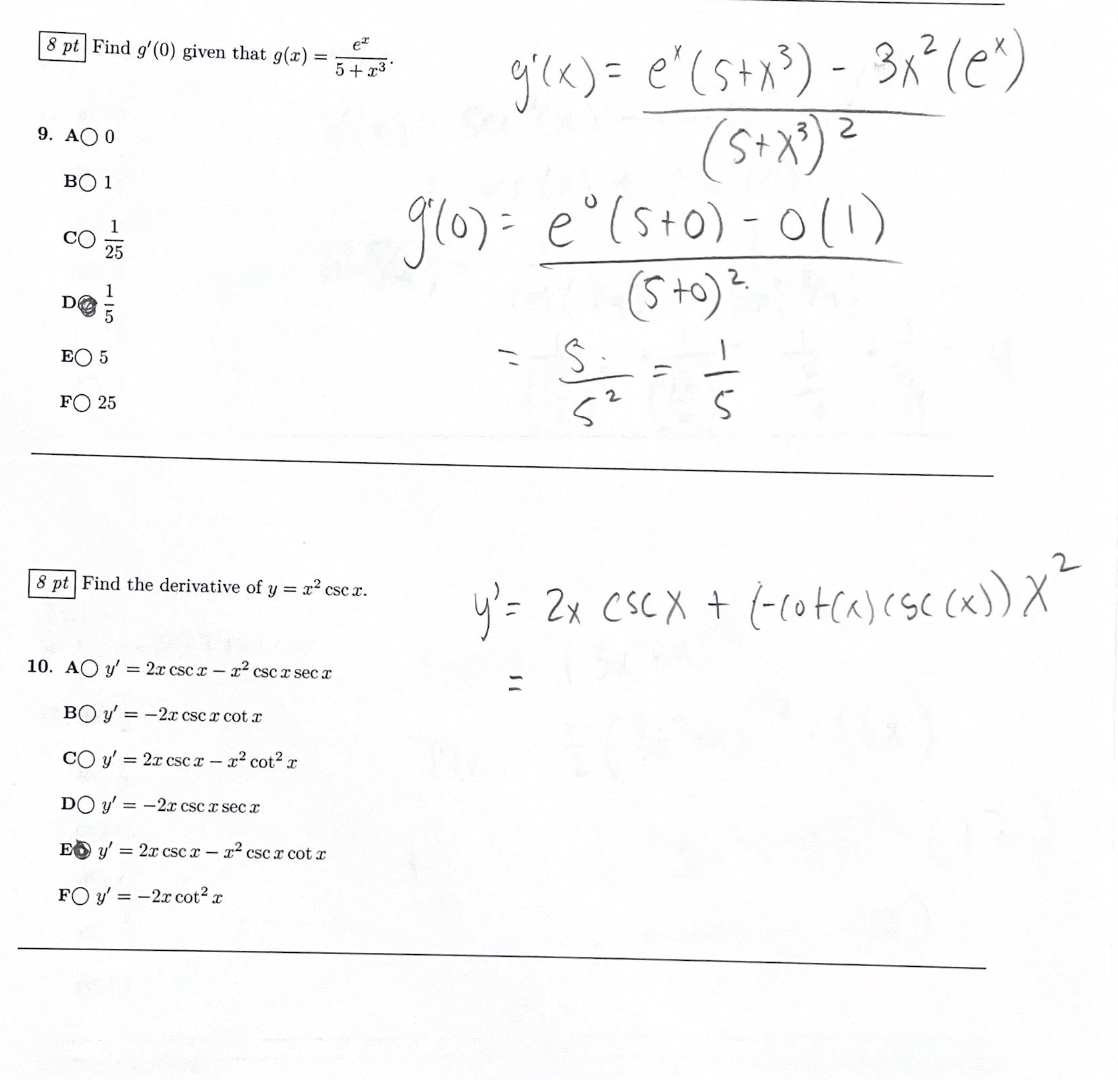 8 pt Find g′(0) given that g(x) = e^x / (5 + x³).
g'(x) = (e^x (5+x³) - 3x² (e^x)) / (5+x³)²
9. A○ 0
B○ 1
C○ 1/25
D● 1/5
E○ 5
F○ 25
g'(0) = (e⁰ (5+0) - 0(1)) / (5+0)²
= 5/5² = 1/5
8 pt Find the derivative of y = x² csc x.
y' = 2x csc x + (-cot(x) csc(x)) x²
=
10. A○ y′ = 2x csc x − x² csc x sec x
B○ y′ = −2x csc x cot x
C○ y′ = 2x csc x − x² cot² x
D○ y′ = −2x csc x sec x
E● y′ = 2x csc x − x² csc x cot x
F○ y′ = −2x cot² x